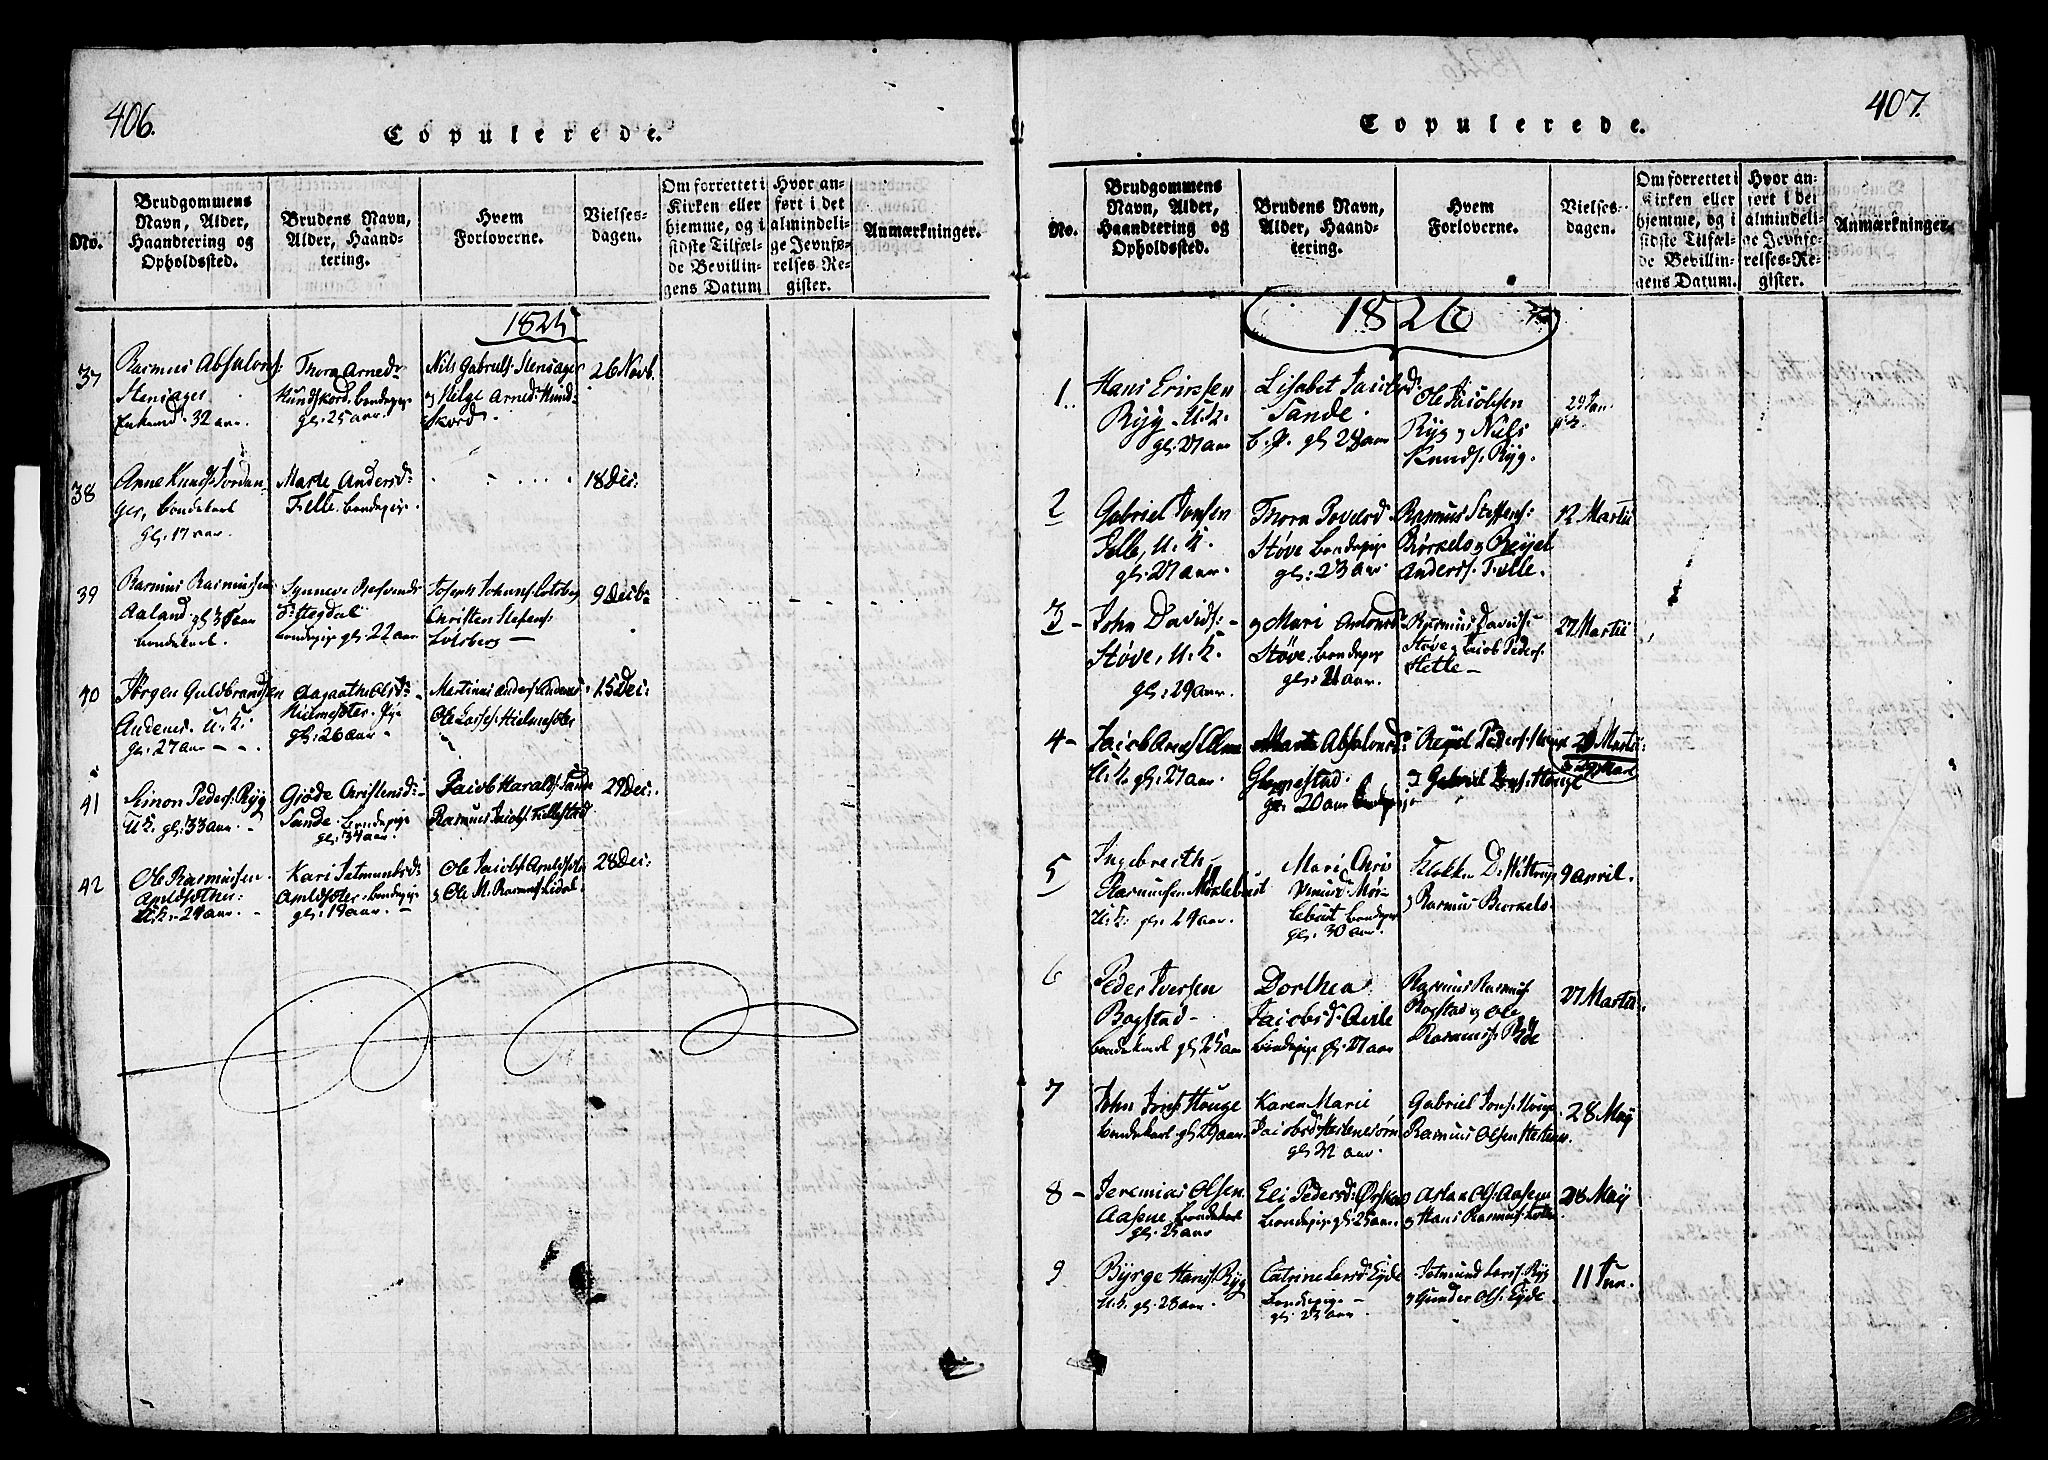 406.
Copulerede.
No.
Brudgommens
Navn, Alder,
Haandtering og
Opholdssted.
Brudens Navn,
Alder, Haand-
tering.
Hvem
Forloverne.
Vielses-
dagen.
Om forrettet i
Kirken eller
hjemme, og i
sidste Tilfæl-
de Bevillin-
gens Datum
Hvor an-
ført i det
almindeli-
ge Jevnfø-
relses-Re-
gister.
Anmærkninger.
1825
37
Rasmus Absalons:
Stensager
Enkemd. 32 aar.
Thora Arnedr
Hundskord bondepige
gl: 25 aar.
Nils Gabriels: Stensager
og Helge Arned: Hund-
skord.
26 Novb.
38
Arne Knuds: Jordan-
ger, bondekarl
gl: 17 aar.
Marte Andersd:
Felle. bondepige.
18 Dec:
39
Rasmus Rasmussen
Aaland gl: aar
bondekarl.
Synneve
bondepige gl: 22 aar.
Joseph Johans: Lotsberg
Christen Stefens:
Lotsberg
9 Decb
40
Jørgen Guldbrandsen
Andenes. U: K:
gl: 27 aar
Aagaathe Olsd:
Hielmesæter. Pige
gl: 26 aar
Martinus Anders: Andenes
Ole Larses: Hielmesæter
15 Dec:
41
Simon Peders: Ryg
U: K: gl: 33 aar.
Gjøde Christensd:
Sande. bondepige
gl: 37 aar.
Jacob Haralds: Sande
Rasmus Jacobs: Fellestad
29 Dec:
42
Ole Rasmussen
U: K. 29 aar.
Kari Jetmundsd:
bondepige
gl: 19 aar.
Ole Jacobs:
og Ole M. Rasmus:
28 Dec:
407.
Copulerede.
No.
Brudgommens
Navn, Alder,
Haandtering og
Opholdssted.
Brudens Navn,
Alder, Haand-
tering.
Hvem
Forloverne.
Vielses-
dagen.
Om forrettet i
Kirken eller
hjemme, og i
sidste Tilfæl-
de Bevillin-
gens Datum.
Hvor an-
ført i det
almindeli-
ge Jevnfø-
relses-Re-
gister.
Anmærkninger.
1826
1.
Hans Ericssen
Ryg. U: K.
gl: 27 aar
Lisabet Jacobsd:
Sande.
b. p. gl: 28 aar
Ole Jacobsen
Ryg og Niels
Knuds: Ryg.
29 Jan.
2
Gabriel Jonsen
Felle, U: K.
gl: 27 aar.
Thora Povelsd
Støve bondepige
gl: 23 aar
Rasmus Steffens:
Børkelo og Reyel
Anderss. Felle.
12 Martii
3
John Davids:
Støve, U: K.
gl: 29 aar.
og Mari Antonsd:
Støve. bondepige
gl: 21 aar.
Rasmus Davids:
Støve og Jacob Peders:
Hetle
27 Martii
4
Jacob Arnes:
U: K. gl: 27 aar.
Marte Absalonsd:
Glomestad.
gl: 20 aar bondepige
Reyel Peders:
og Gabriel Jons: Houge
Martii
5
Ingebreith
Rasmussen Myklebust
U: K: gl: 29 aar.
Mari Chris
bondepige
gl: 30 aar.
Klokk. D. Wittrup
og Rasmus Biorkelo.
9 april.
6
Peder Iversen
Bogstad
bondekarl gl: 25 aar
Dorthea
Jacobsd:
bondepige gl: 27 aar
Rasmus Rasmus:
Bogstad og Ole
Rasmuss:
27 Martii
7
John Jons: Houge
bondekarl gl: 29 aar.
Karen Marie
Jacobsd: Hestenesøren
gl: 32 aar.
Gabriel Jons: Houge
Rasmus Olsen
28 May
8
Jeremias Olsen
Aasene bondekarl
gl: 25 aar
Eli Pedersd:
bondepige gl: 25 aar.
Aslak Ols: Aasene
og Hans Rasmus:
28 May
9
Byrge Hans: Ryg
U: K. gl: 28 aar.
Catrine Larsd: Eyde
bondepige
gl: 23 aar
Jetmund Larss: Ryg
og Gunder Ols: Eyde.
11 Jun.